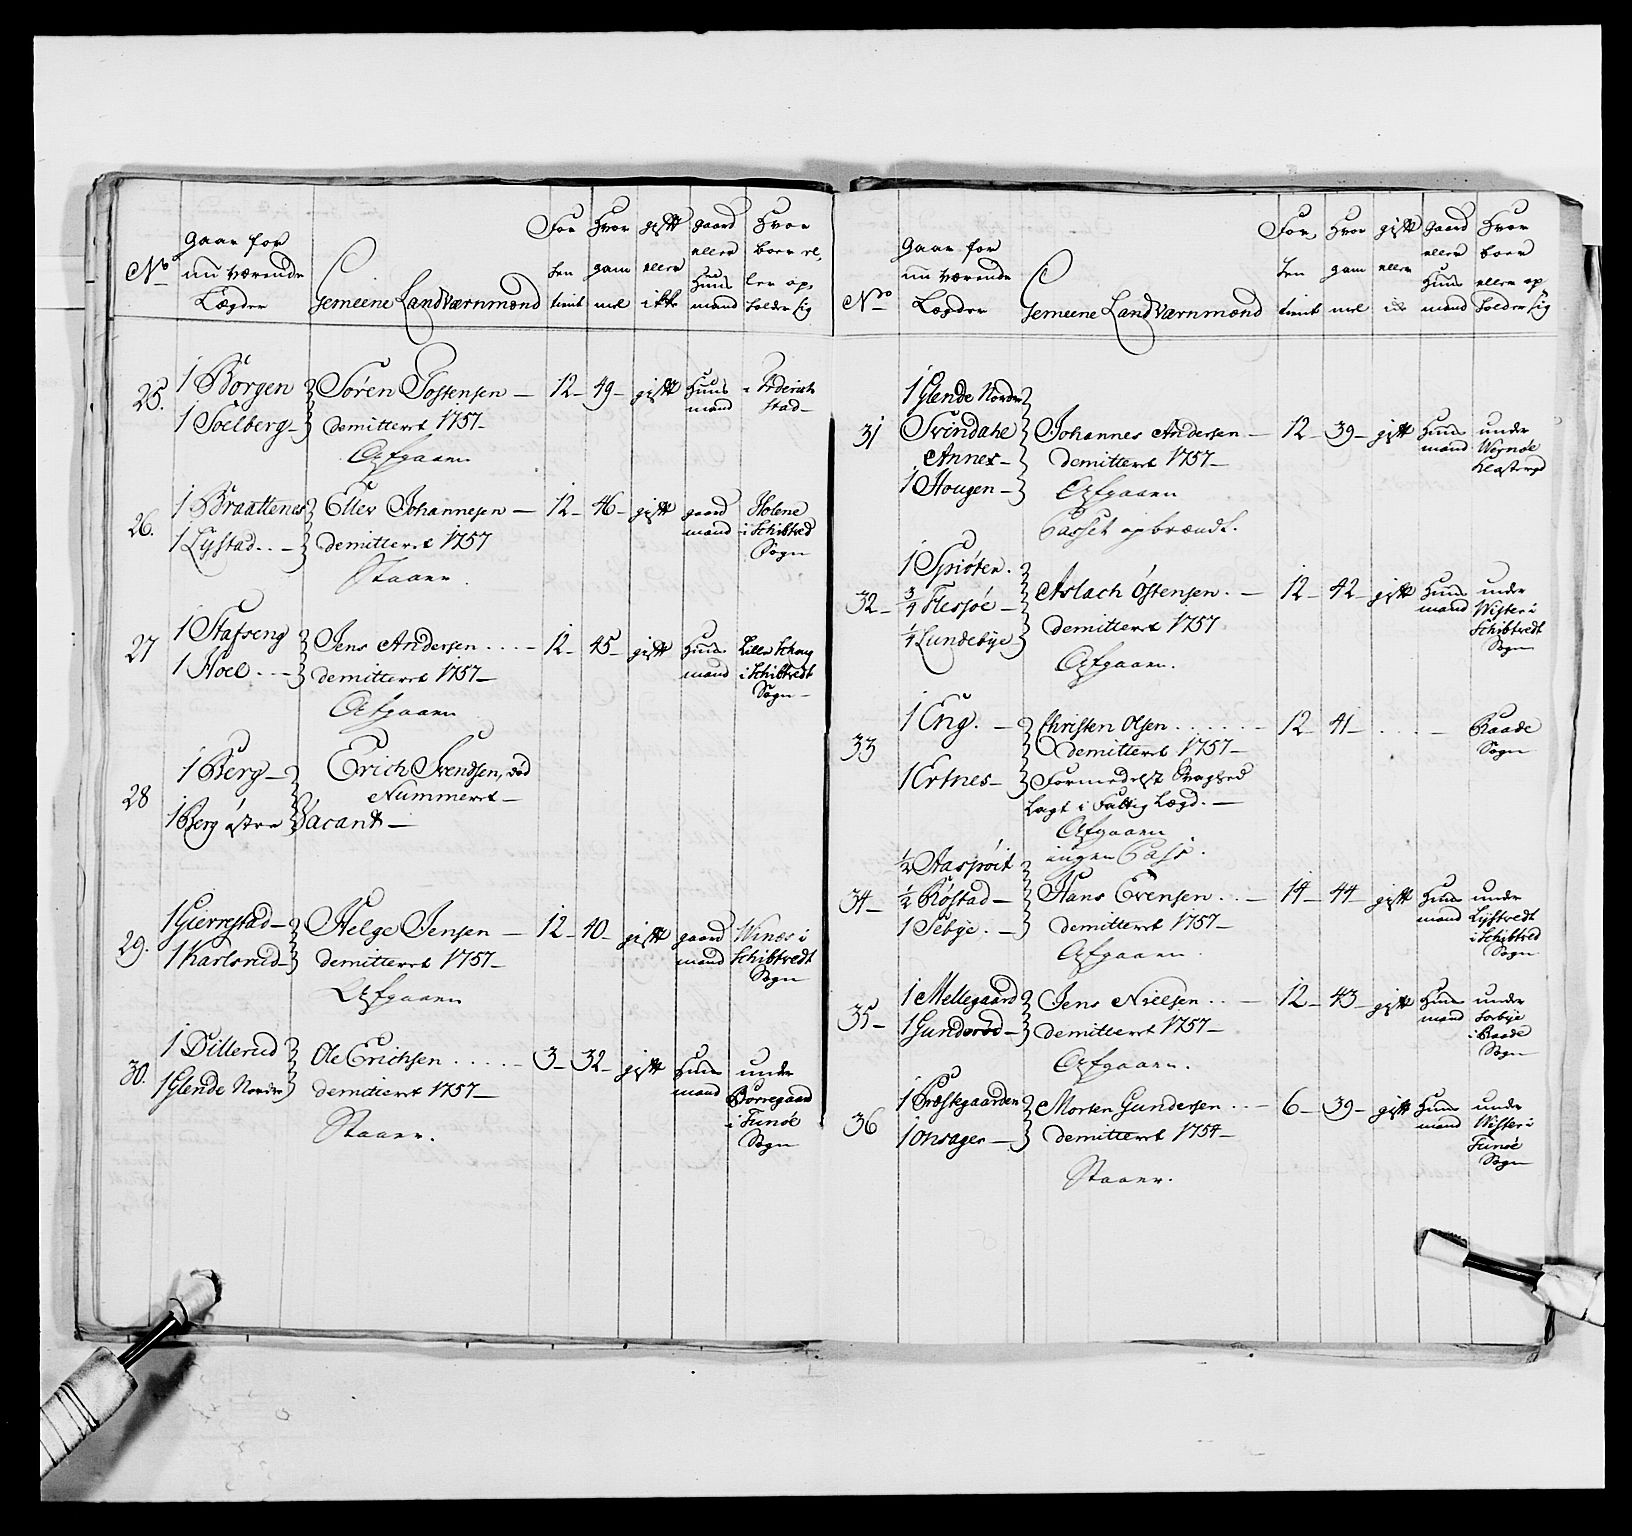 No
gaar for
nu værende
Lægder
Gemeene Landværnmænd
For
hen
tient
Hvor
gam
mel
gift
eller
ikke
gaard
eller
Huus
mand
Hvor
boer el,
ler op,
holder sig
25.
1 Borgen
1 Soelberg
Søren Tostensen
demitteret 1757
Afgaaer
12
49
gift
Huus
mand
i Frderich
stad
26.
1 Braattenes
1 Lystad
Ellev Johannesen
demitteret 1757
Staaer.
12
46
gift
gaard
mand
Holene
i Schibtved
Sogn
27
1 Stafseng
1 Hoel
Jens Andersen
demitteret 1757
Afgaaer
12
45
gift
Huus
mand
Lille
i Schibtvedt
Sogn
28
1 Berg
1 Berg østre
Erich Svendsen, død
Nummeret
Vacant
29.
1 Gierrestad
1 Karlsrud
Helge Jensen
demitteret 1757
Afgaaer
12
40
gift
gaard
mand
Winæs i
Schibtvedt
Sogn
30.
1 Dillerud
1 Glende Nordre
Ole Erichsen
demitteret 1757
Staaer.
3
32
gift
Huus
mand
under
Borregaard
i Tunøe
Sogn
No
gaar for
nu værende
Lægder
Gemeene Landværnmænd
For,
hen
tient
Hvor
gam
mel
gift
eller
gaard
eller
Huus
mand
Hvor
boer
eller op,
holder sig
31
1 Glende Nordr
Svindahl
Annex
1 Hougen
Johannes Andersen
demitteret 1757
Afgaaer
Passet opbrændt.
12
39
gift
Huus
mand
under
Wernøe
Klostergd
32
1 Spiøten.
3/4 Flesjøe
1/4 Lundebye
Aslach Østensen
demitteret 1757
Afgaaer.
12
42
gift
Huus
mand
under
Wister i
Schibtvedt
Sogn
33
1 Eng.
1 Ertnes
Christen Olsen
demitteret 1757
Formedelst Svaghed
lagt i Fattig Lægd.
Afgaaer
ingen Pass.
12
41
Raade
Sogn
34
1/2 Haasrøit
1/2 Røstad
1 Sebye.
Hans Evensen
demitteret 1757
Afgaaer.
14
44
gift
Huus
mand
under
Lystvedt
i Schibtved
Sogn
35
1 Mellegaard
1 Gunderød
Jens Nielsen
demitteret 1757
Afgaaer.
12
43
gift
Huus
mand
under
i Raade
Sogn
36
1 Præstegaarden
1 Onsager
Morten Gundersen
demitteret 1754
Staaer.
6
39
gift
Huus
mand
under
Wister i
Tunøe
Sogn